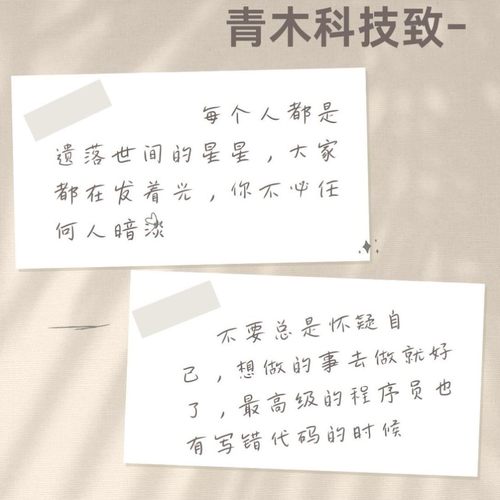 青木科技致-
每个人都是
遗落世间的星星，大家
都在发着光，你不必任
何人暗淡
不要总是怀疑自
己，想做的事去做就好
了，最高级的程序员也
有写错代码的时候